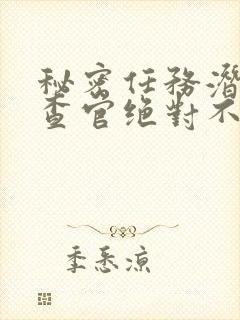 秘密任務潛
查官绝對不
季悉凉